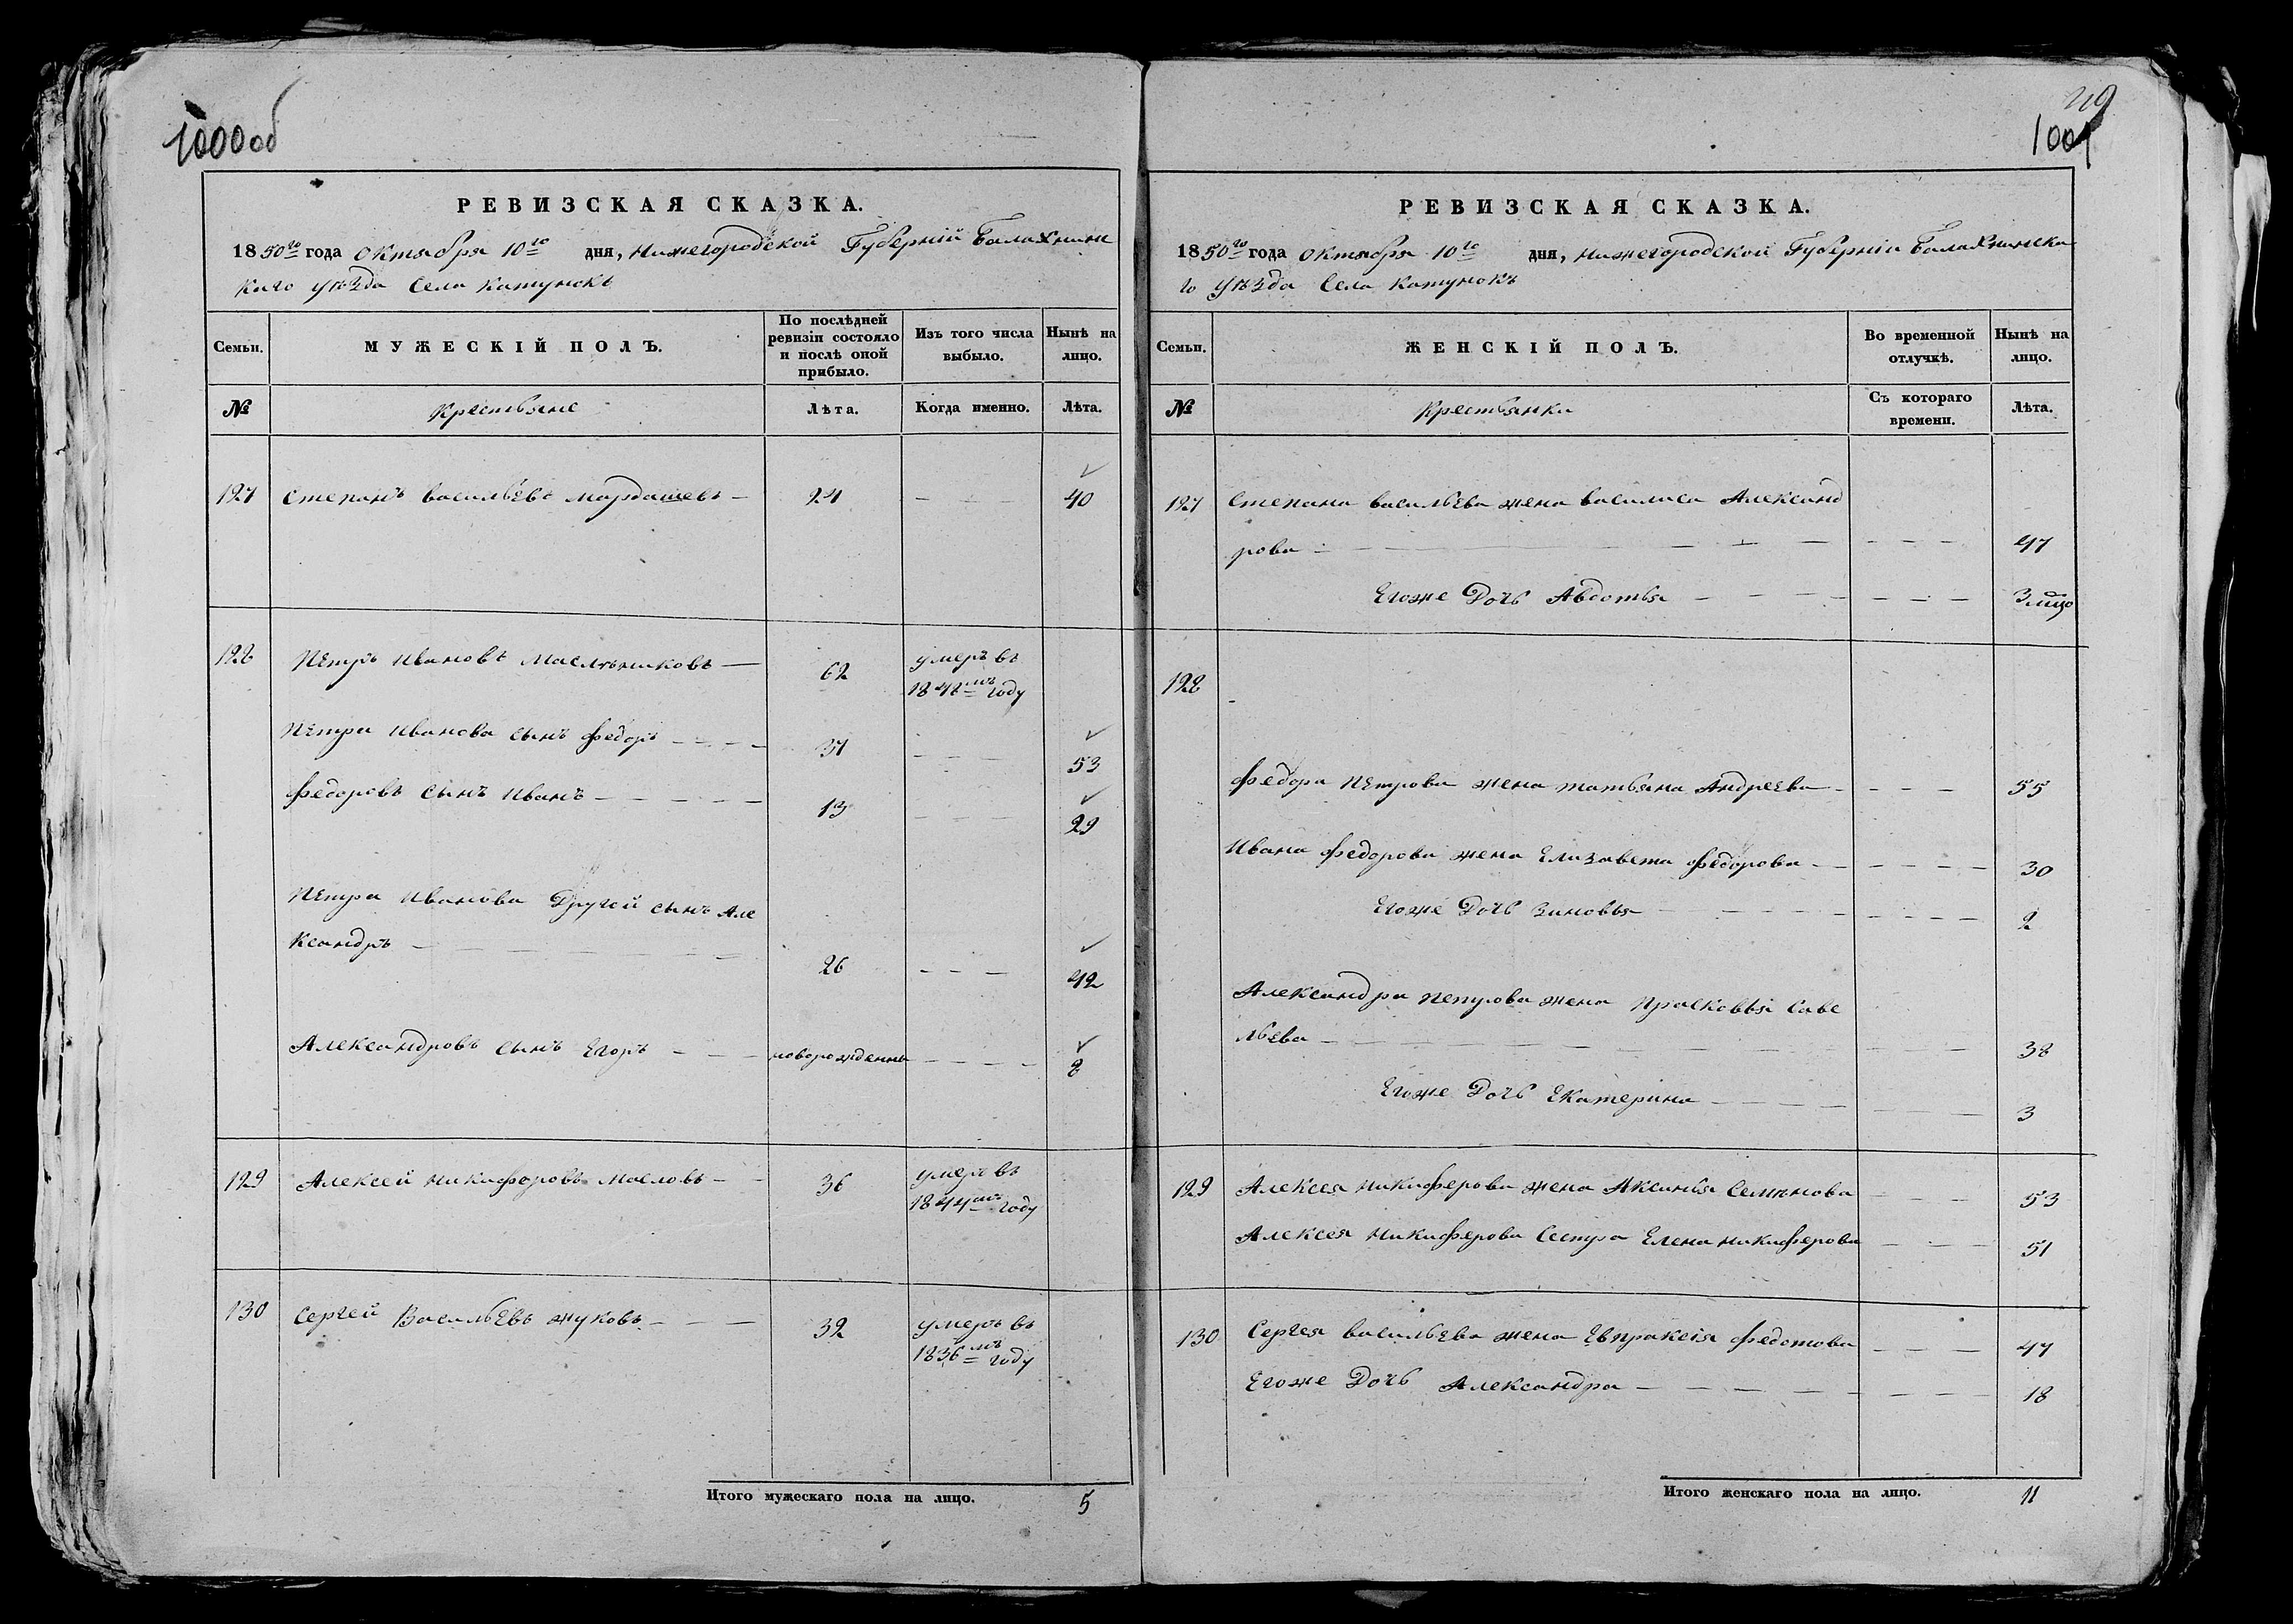 1000об
РЕВИЗСКАЯ СКАЗКА.
1850го года Октября 10го дня, Нижегородской Губерній Балахнинс
каго уѣзда Села Катунокъ
Семьи.
МУЖЕСКІЙ ПОЛЪ.
По послѣдней ревизіи состояло и послѣ оной прибыло.
Изъ того числа выбыло.
Нынѣ на лицо.
№
Крестьяне
Лѣта.
Когда именно.
Лѣта.
127 Степанъ Васильевъ Мардашевъ — 24 — — — 40
128 Петръ Ивановъ Маслѣниковъ — 62 умеръ въ
1848мъ году
Петра Иванова сынъ Федоръ — — — 37 — — — 53
Федоровъ сынъ Иванъ — — — — 13 — — — 29
Петра Иванова Другой сынъ Але
ксандръ — — — — 26 — — — 42
Александровъ сынъ Егоръ — — — новорожденны — — — 8
129 Алексей Никифоровъ Масловъ — 36 умеръ въ
1844мъ году
130 Сергей Васильевъ Жуковъ — — — 32 умеръ въ
1836мъ году
Итого мужескаго пола на лицо. 5
119
1001
РЕВИЗСКАЯ СКАЗКА.
1850го года Октября 10го дня, Нижегородской Губерніи Балахнинска
го Уѣзда Села Катунокъ
Семьи.
ЖЕНСКІЙ ПОЛЪ.
Во временной отлучкѣ.
Нынѣ на лицо.
№
Крестьянки
Съ котораго времени.
Лѣта.
127 Степана Васильева жена Василиса Александ
рова — — — — — — — 47
Егоже Дочь Авдотья — — — — — — — 3
128
Федора Петрова жена Татьяна Андреева — — — — 55
Ивана Федорова жена Елизавета Федорова — — — — — 30
Егоже Дочь Зиновья — — — — — — — 2
Александра Петрова жена Прасковья Саве
льева — — — — — — — 38
Егоже Дочь Екатерина — — — — — — 3
129 Алексея Никиферова жена Аксинья Семѣнова — — — 53
Алексея Никиферова Сестра Елена Никиферова — — — 51
130 Сергея Васильева жена Евпраксія Федотова — — — 47
Егоже Дочь Александра — — — — — — — 18
Итого женскаго пола на лицо. 11